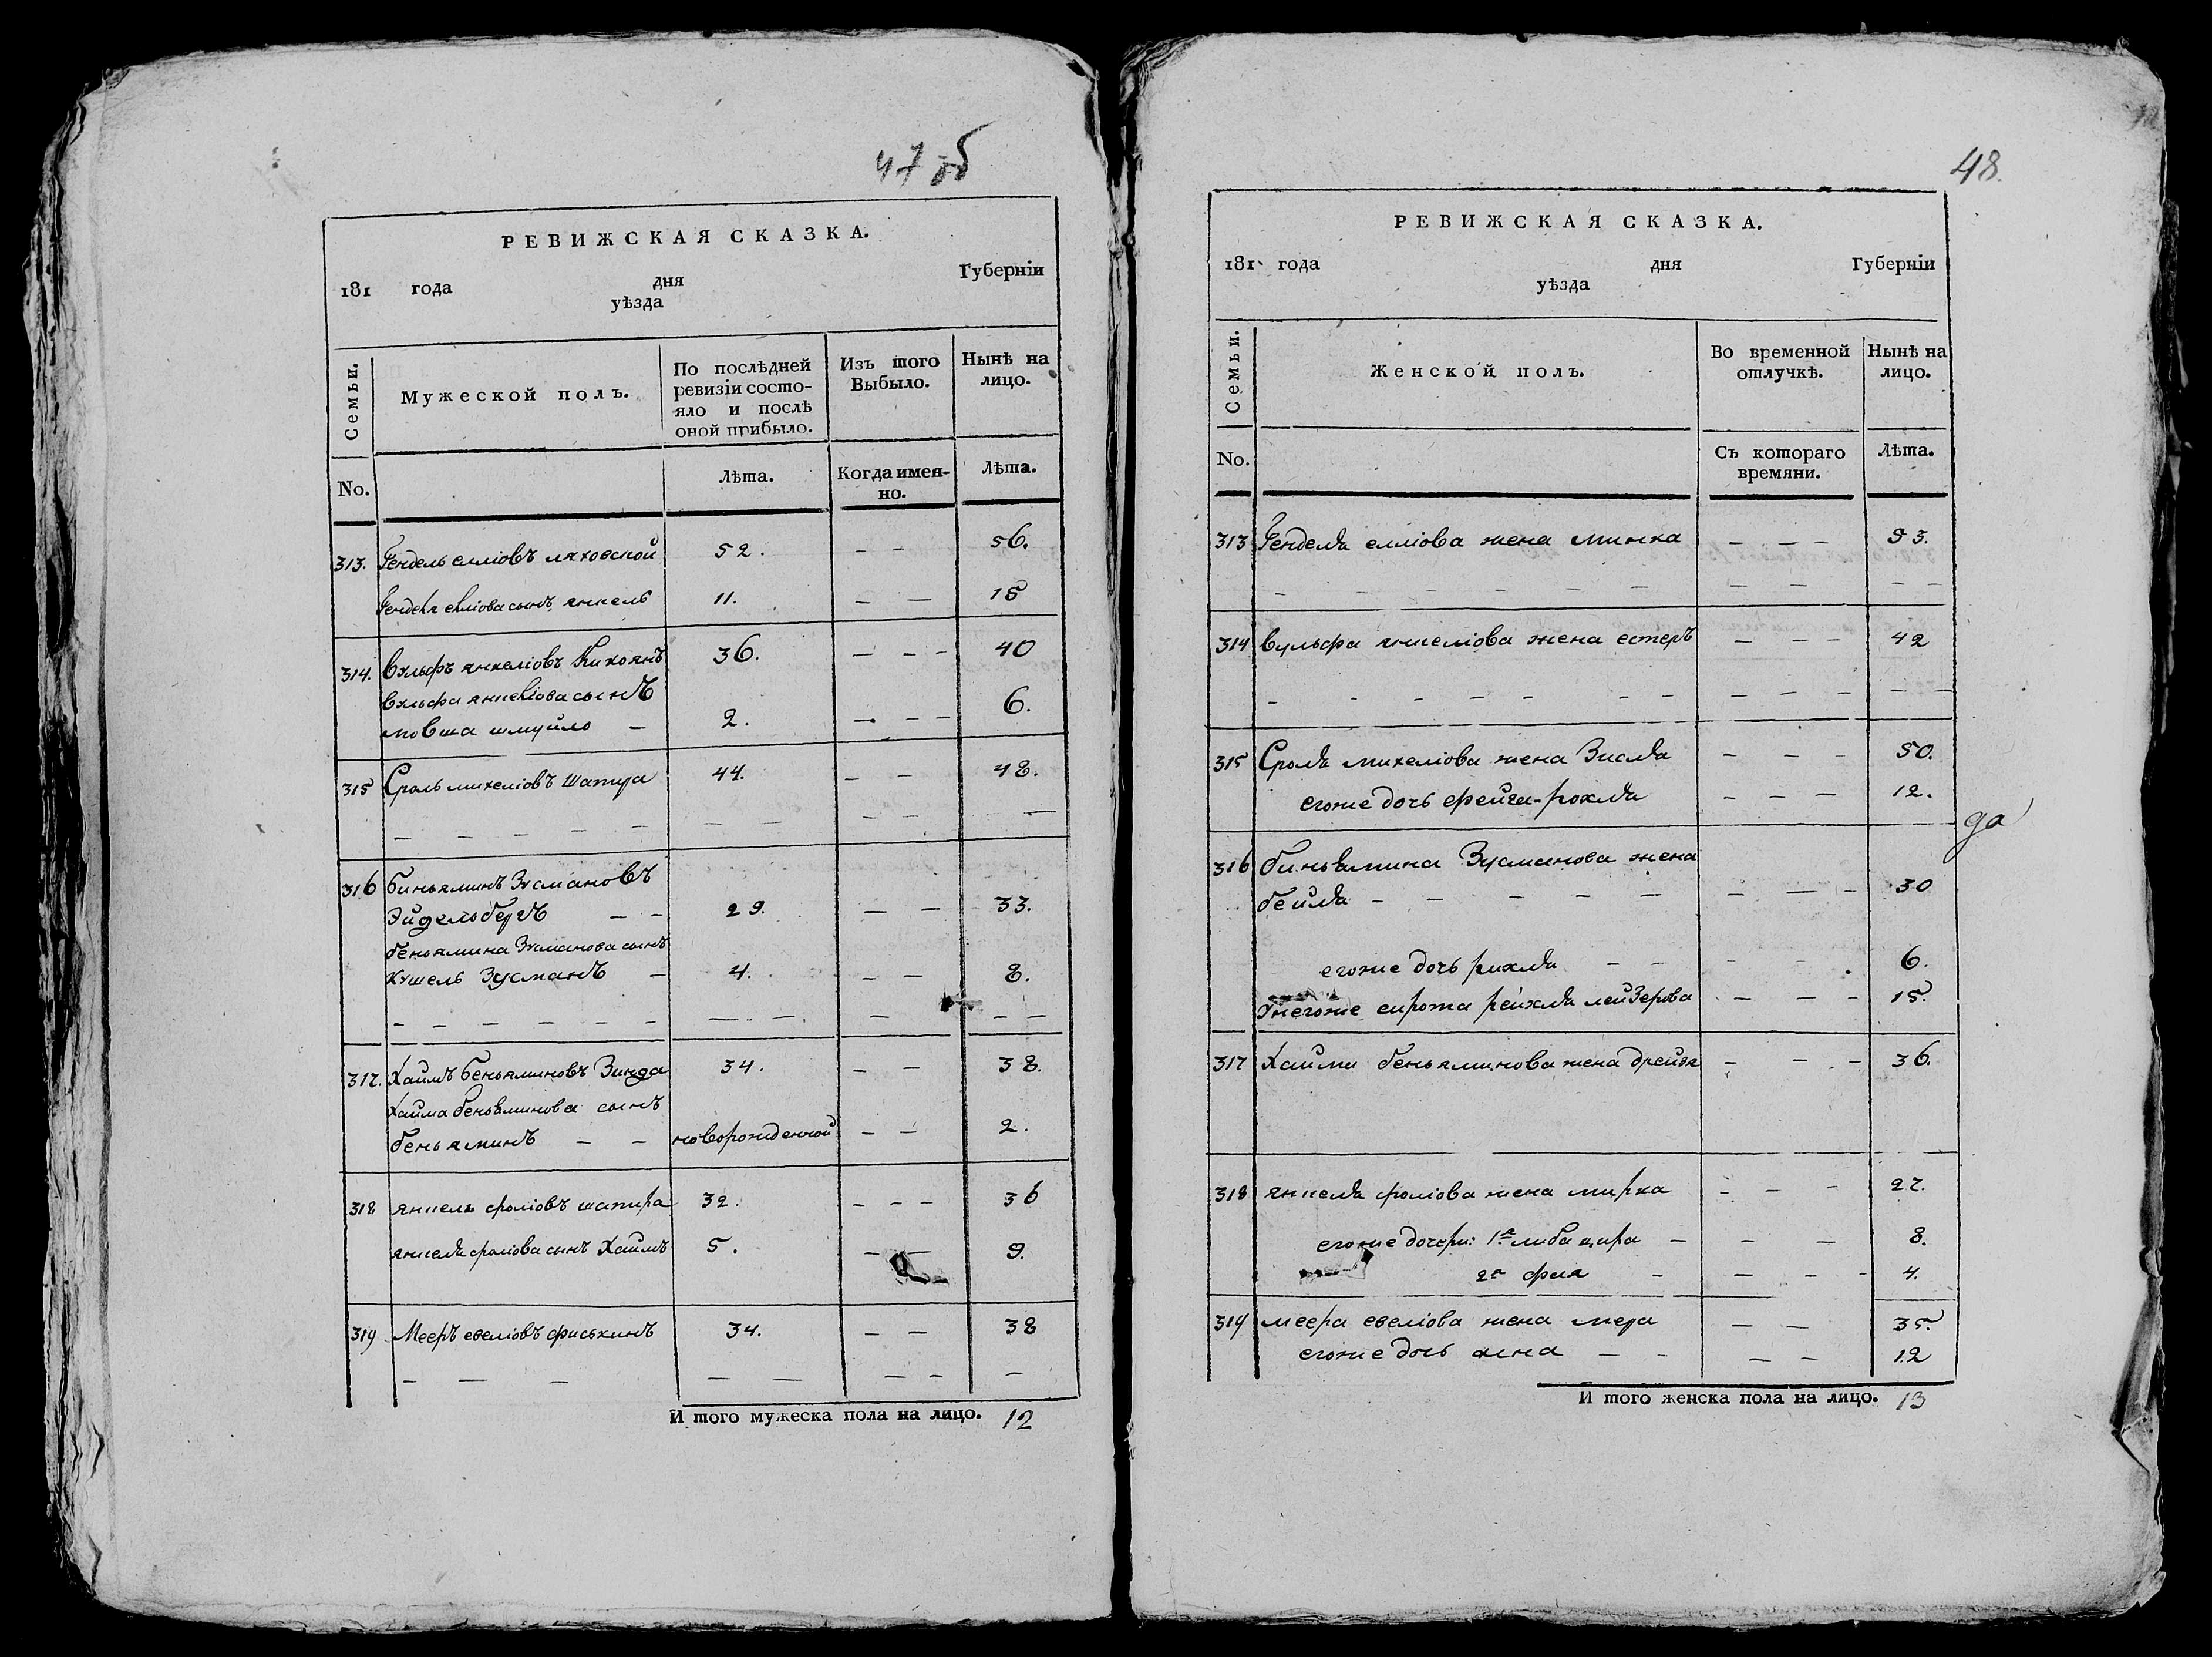 47 об
РЕВИЖСКАЯ СКАЗКА.
181 года дня Губерніи
уѣзда
Семьи. Мужеской полъ. По послѣдней ревизіи состояло и послѣ оной прибыло. Изъ того Выбыло. Нынѣ на лицо.
No. Лѣта. Когда именно. Лѣта.
313. Гендель елліовъ ляховской 52. — — 56.
Генделя елліова сынъ янкель 11. — — 15
314. Вульфъ янкеліовъ 36. — — — 40
Вульфа янкеліова сынъ
мовша шмуйло — 2. — — — 6.
315 Сроль михеліовъ Шапира 44. — — 48.
— — — — — — — — — —
316 Биньяминъ Зусмановъ
Эйдельбергъ — — 29. — — 33.
беньямина Зусманова сынъ
Кушель Зусманъ — 4. — — 8.
— — — — — — — — — — —
317. Хаимъ беньяминовъ Зинда 34. — — 38.
Хаима беньяминова сынъ
беньяминъ — — новорожденной — — 2.
318 янкель сроліовъ шапира 32. — — — 36
янкеля сроліова сынъ Хаимъ 5. — — 9.
319 Мееръ евеліовъ фиськинъ 34. — — 38
— — — — — — — —
И того мужеска пола на лицо. 12
48.
РЕВИЖСКАЯ СКАЗКА.
181 года дня Губерніи
уѣзда
Семьи. Женской полъ. Во временной отлучкѣ. Нынѣ на лицо.
No. Съ котораго времяни. Лѣта.
313 Генделя елліова жена минка — — — 53.
— — — — — — — — — —
314 Вульфа янкеліова жена естеръ — — — 42
— — — — — — — — — — —
315 Сроля михеліова жена Зисля — — — 50.
егоже дочь фейга-рохля — — — 12.
да
316 биньямина Зусманова жена
бейля — — — — — — — — 30
егоже дочь рихля — — — — 6.
Унегоже сирота рейхля лейзерова — — — 15.
317 Хаима беньяминова жена дрейзя — — — 36.
318 янкеля сроліова жена мирка — — — 27.
егоже дочери: 1я либа цира — — — 8.
2я фая — — — — 4.
319 меера евеліова жена мера — — 35.
егоже дочь хена — — — — 12
И того женска пола на лицо. 13